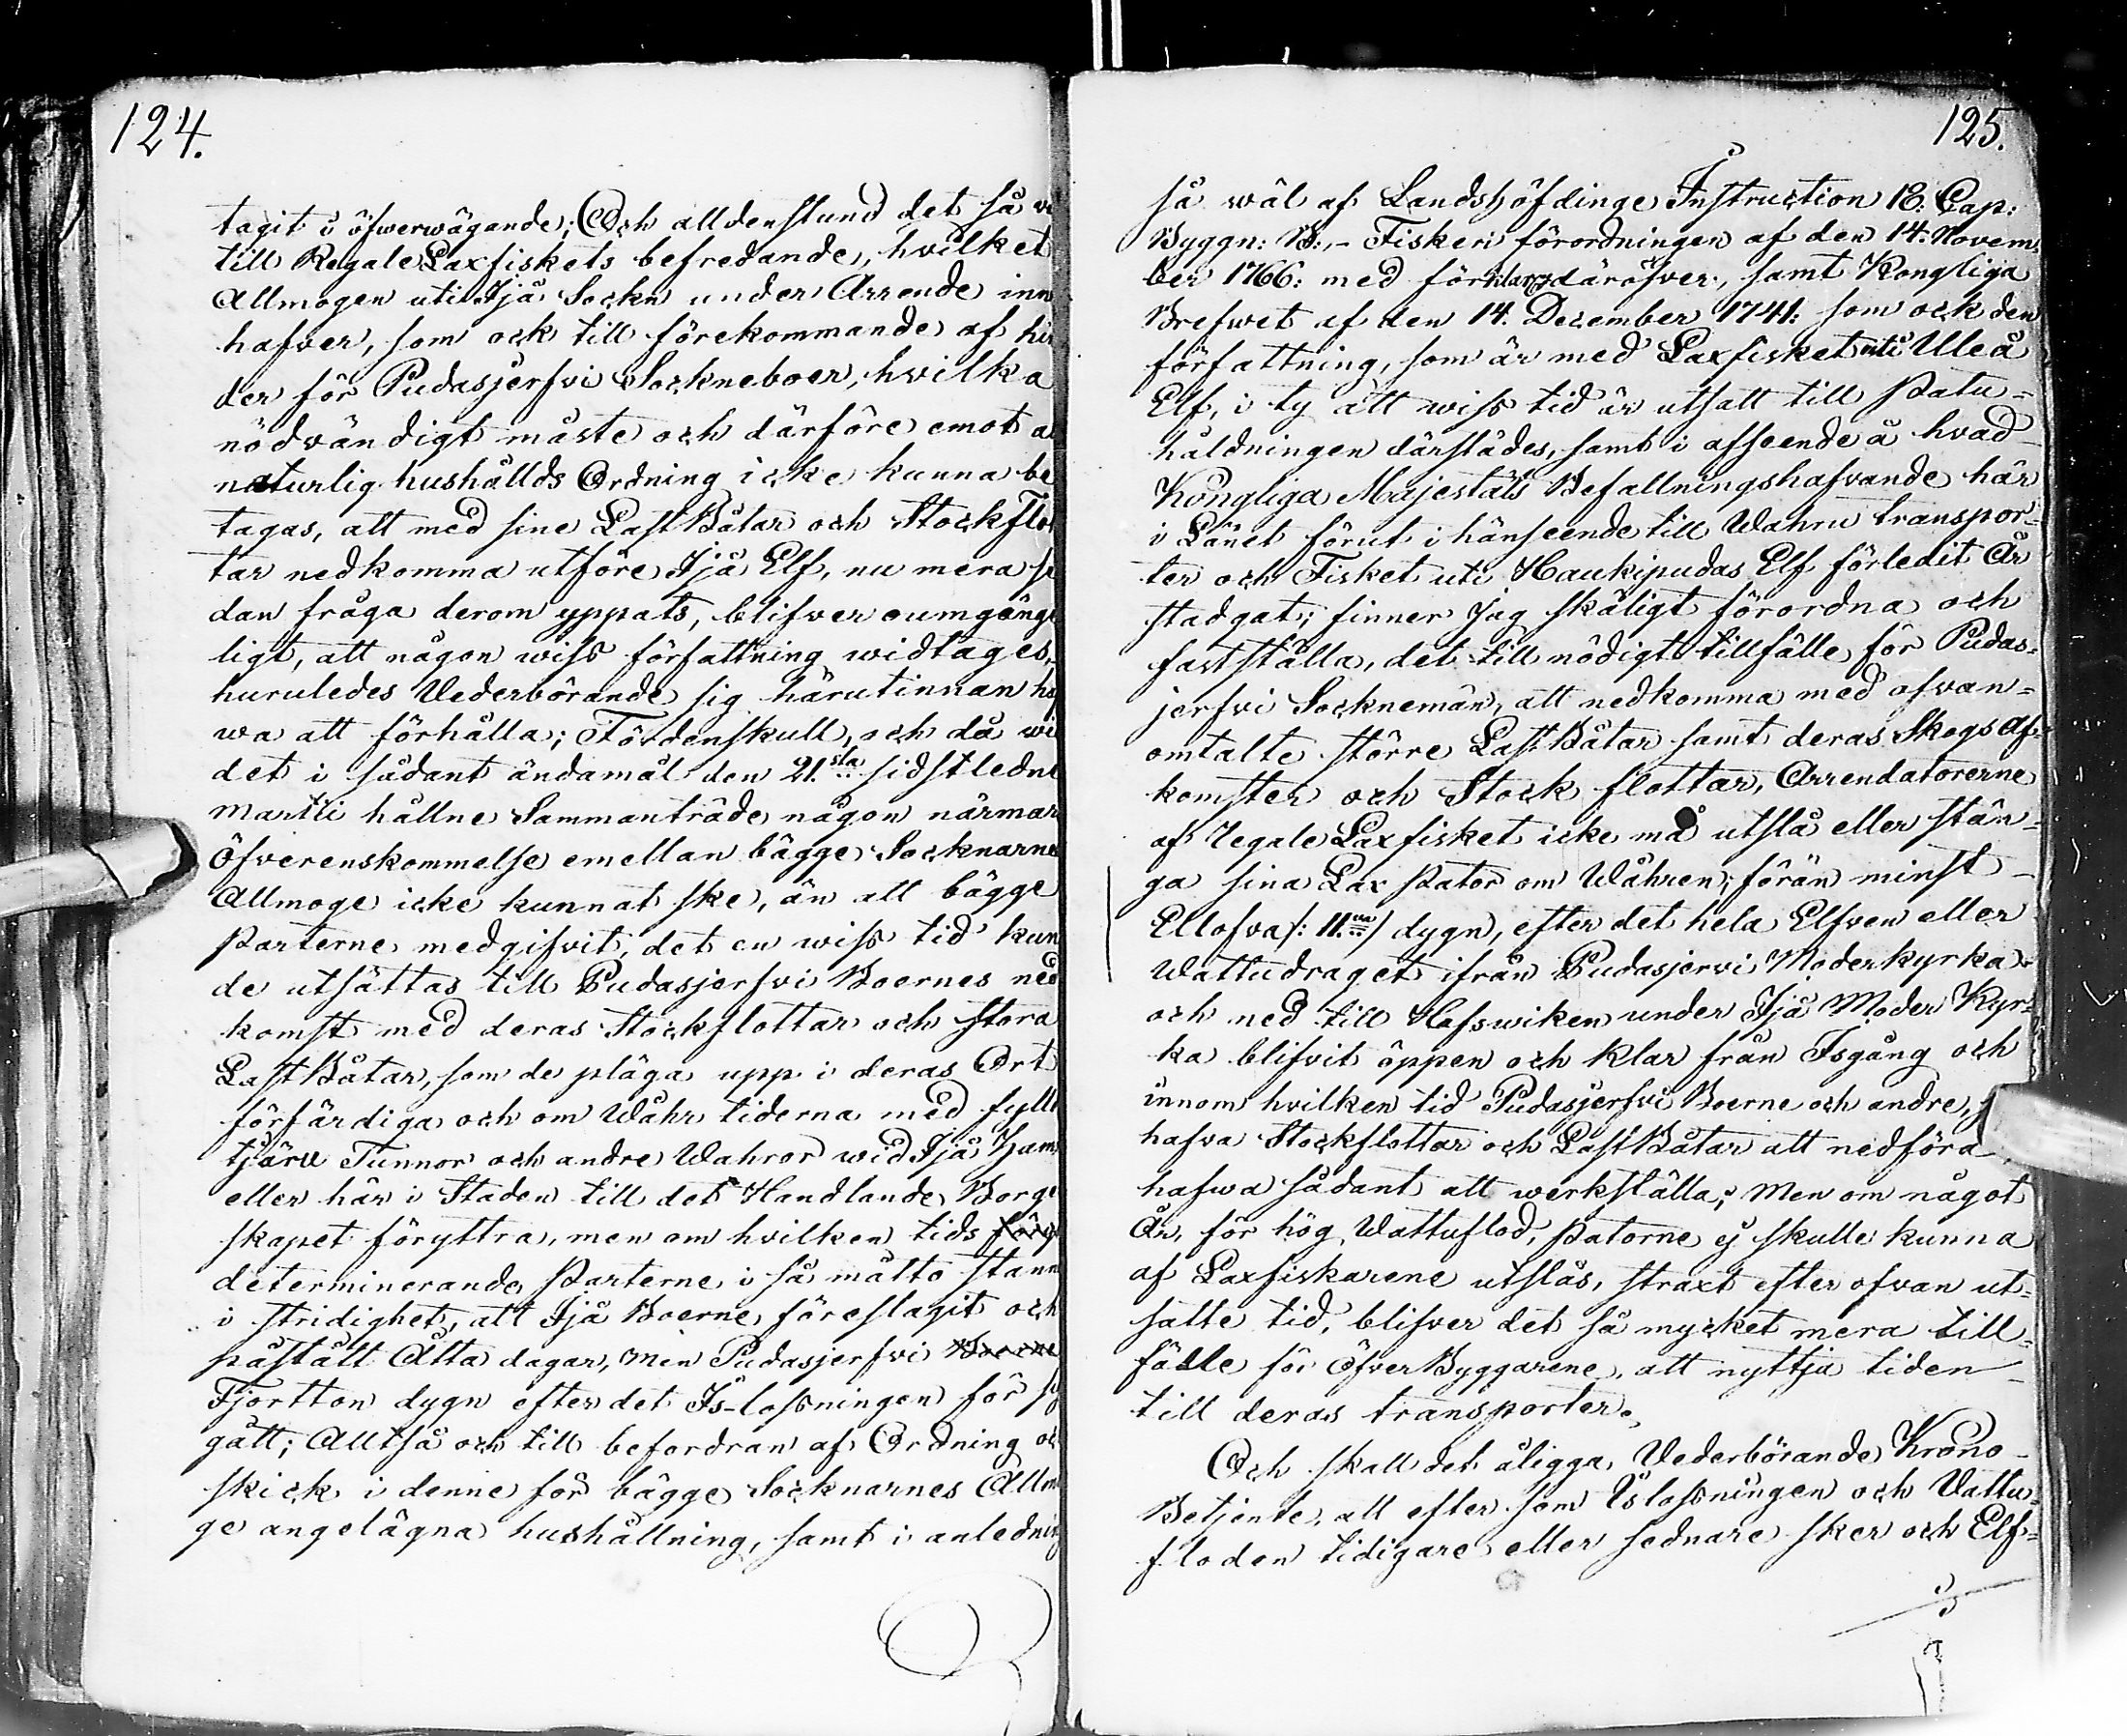 124.
tagit i öfwerwägande; Och alldenstund det så
till Regale Laxfiskets befredande, hvilket
Allmogen uti Ijå Sockn under Arrende inn
hafver, som ock till förekommande af hin
der för Pudasjerfvi Sockneboer, hvilka
nödvändigt måste och därföre emot
naturlig hushållds Ordning icke kunna be
tagas, att med sine LastBåtar och Stockflot
tar nedkomma utföre Ijå Elf, nu mera se
dan fråga derom yppats, blifver oumgäng
ligt, att någon wiss författning widtages,
huruledes Vederbörande sig härutinnan haf
wa att förhålla; Fördenskull, och då wi
det i sådant ändamål den 21.sta sidstledne
Martii hållne Sammanträde någon närmar
Öfverenskommelse emellan bägge Socknarne
Allmoge icke kunnat ske, än att bägge
Parterne medgifvit, det en wiss tid kun
de utsättas till Pudasjerfvi Boernes ned
komst med deras Stockflottar och stora
LastBåtar, som de pläga upp i deras Ort
förfärdiga och om Wåhr tiderna med fyllt
tjäru Tunnor och andre Wahror wid Ijå Ham
eller här i Staden till det Handlande Borge
skapet föryttra, men om hvilken tids
determinerande Parterne i så måtto stann
i stridighet, att Ijå Boerne föreslagit och
påstått Åtta dagar, men Pudasjerfvi Boerne
Fjortton dygn efter det Is-lossningen för sig
gått; Alltså och till befordran af Ordning oc
skick i denne för bägge Socknarnes Allmo
ge angelägna hushållning, samt i anledning
125.
så wäl af Landshöfdinge Instruction 18: Cap:
Byggn: B:, - Fiskeri förordningen af den 14: Novem
ber 1766: med förklaring däröfver, samt Kongliga
Brefwet af den 14. December 1741: som ock den
författning, som är med Laxfisket uti Uleå
Elf, i ty att wiss tid är utsatt till Patu-
håldningen därstädes, samt i afseende å hvad
Kongliga Majestäts Befallningshafvande här
i Länet förut i hänseende till Wahru transpor=
ter och Fisket uti Haukipudas Elf förledit År
stadgat; finner Jag skäligt förordna och
fastställa, det till nödigt tillfälle för Pudas=
jerfvi Socknemän, att nedkomma med ofvan=
omtalte större Last Båtar samt deras Skogs Af=
komster och Stock flottar, Arrendatorerne
af Regale Laxfisket icke må utslå eller stän=
ga sina Lax Pator om Wåhren, förän minst
Ellofva /: 11.va :/ dygn, efter det hela Elfven eller
Wattudraget ifrån Pudasjervi Moderkyrka
och ned till Hafswiken under Ijå Moder Kyr=
ka blifvit öppen och klar från Isgång och
innom hvilken tid Pudasjerfvi Boerne och andre,
hafva Stockflottar och LastBåtar att nedföra
hafwa sådant att werkställa; Men om något
År, för hög Wattuflod, Patorne ej skulle kunna
af Laxfiskarene utslås, straxt efter ofvan ut=
satte tid, blifver det så mycket mera till=
fälle för ÖfverByggarene, att nyttja tiden
till deras transporter.
Och skall det åligga Vederbörande Krono-
Betjente, all efter som Islossningen och Vattu=
floden tidigare eller sednare sker och Elf=